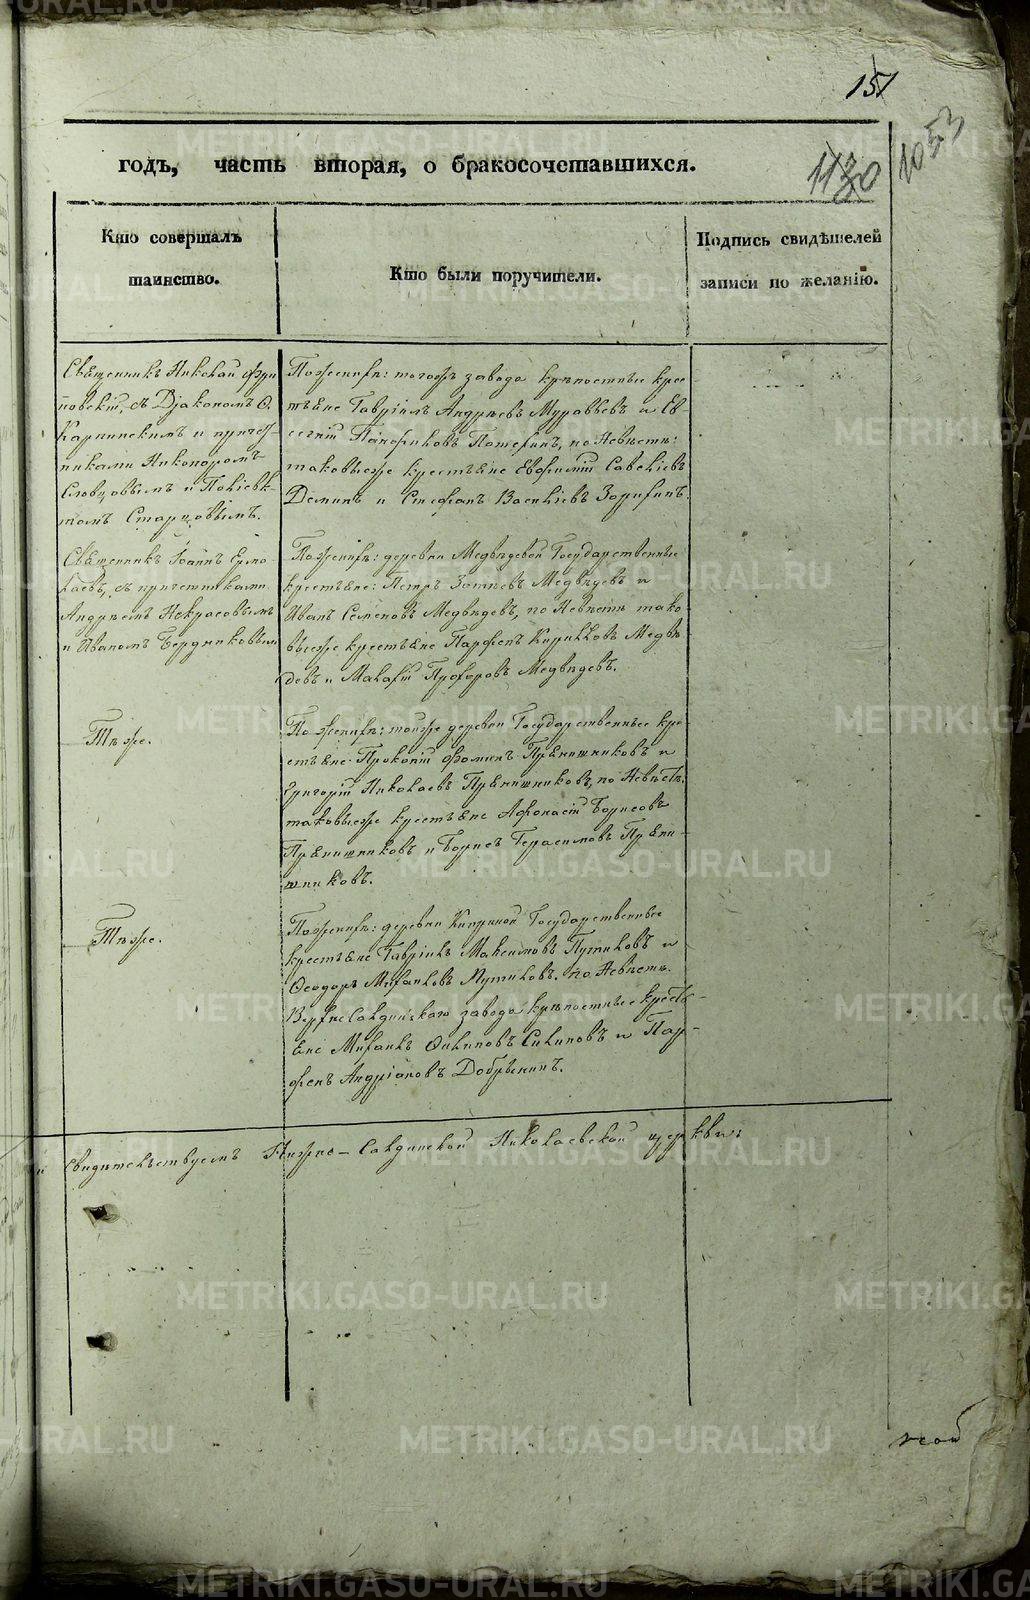 151
1053
1130
годъ, часть вторая, о бракосочетавшихся.
Кто совершалъ таинство.
Кто были поручители.
Подпись свидѣтелей записи по желанію.
Священникъ Николай
съ Діакономъ Ѳ.
Карпинскимъ и причет-
никами Никаноромъ
Словцовымъ и Полієвк-
томъ Старцовымъ.
По женихѣ: тогожъ завода крѣпостные кре-
стьяне Гавріилъ Андреевъ Муравьевъ и Ев-
сегній Панфиловъ Потехинъ, по Невѣстѣ:
таковыеже крестьяне Евфимій Савельевъ
Деминъ и Стефанъ Васильевъ Зорихинъ.
Священникъ Іоаннъ Ермо-
лаевъ, съ причетниками
Андреемъ Некрасовымъ
и Иваномъ Бердниковымъ
По женихѣ: деревни Медвѣдевой Государственные
крестьяне: Петръ Зотеевъ Медвѣдевъ и
Иванъ Семеновъ Медвѣдевъ, по Невѣстѣ тако-
выеже крестьяне Парфенъ Кирилловъ Медвѣ-
девъ и Макарій Прохоровъ Медвѣдевъ.
Тѣже.
По женихѣ: тойже деревни Государственные кре-
стьяне Прокопій Фоминъ Прянишниковъ и
Григорій Николаевъ Прянишниковъ, по Невѣстѣ:
таковыеже крестьяне Афонасій Борисовъ
Прянишниковъ и Борисъ Герасимовъ Пряни-
шниковъ.
Тѣже.
По женихѣ: деревни Киприной Государственные
крестьяне Гавріилъ Максимовъ Путиловъ и
Ѳеодоръ Михайловъ Путиловъ. по Невѣстѣ.
Верхнесалдинскаго завода крѣпостные кресть-
яне Михаилъ Осиповъ Силиновъ и Пар-
фенъ Андріановъ Добрынинъ.
Свидѣтельствуемъ Нижне-Салдинской Николаевской церкви:
METRIKI.GASO-URAL.RU